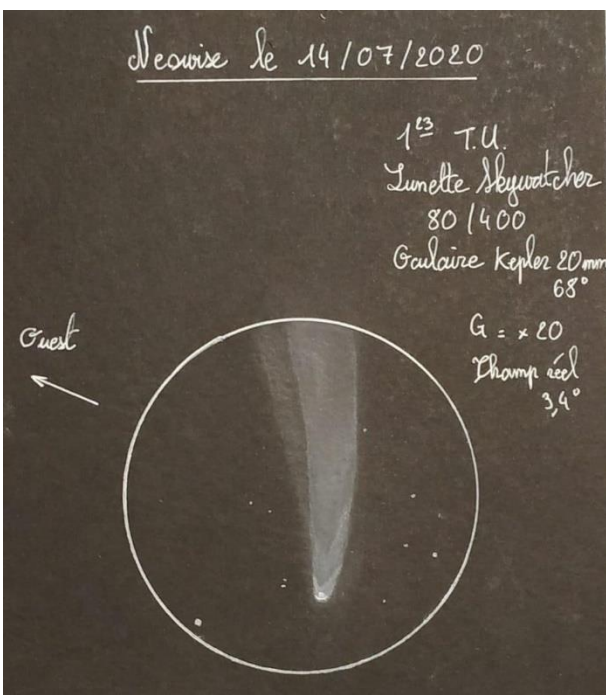 Neowise le 14/07/2020
1 23 T.U.
Lunette Skywatcher
80/400
Oculaire Kepler 20mm
68°
G = x 20
Champ réel
3,4°
Ouest